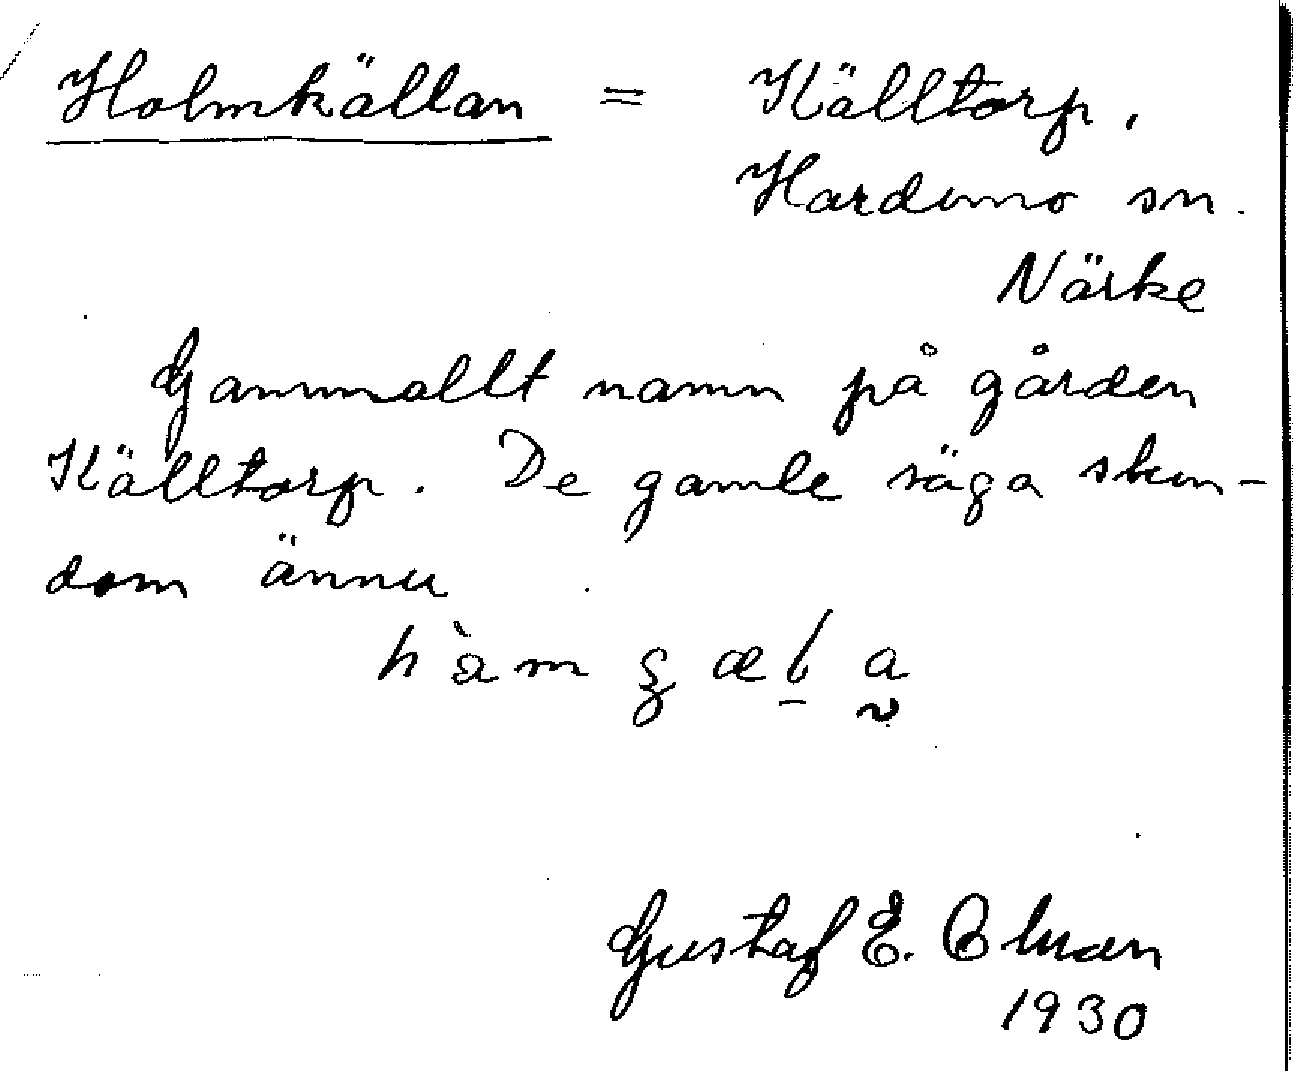 Holmkällan = Källtorp,
Hardemo sn.
Närke
Gammallt namn på gården
Källtorp. De gamle säga stun-
dom ännu
Gustaf E.
1930